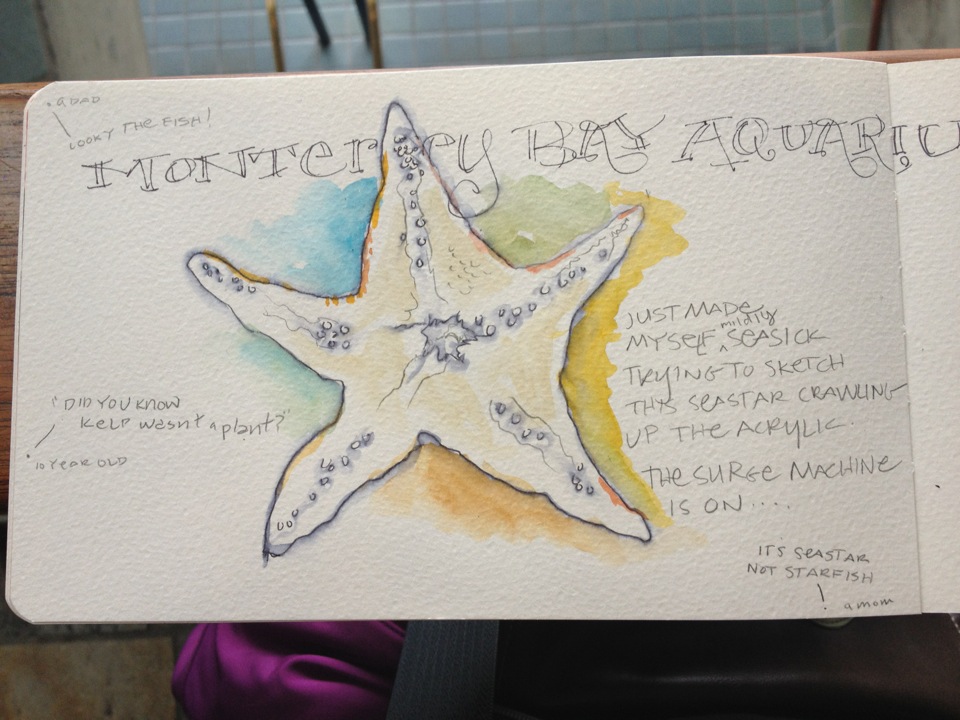 a DAD
LOOKY THE FISH!
MONTEREY BAY AQUARIU
JUST MADE
MYSELF mildly SEASICK
TRYING TO SKETCH
THIS SEASTAR CRAWLING
UP THE ACRYLIC.
THE SURGE MACHINE
IS ON....
"DID YOU KNOW
KELP wasn't a plant?"
10 YEAR OLD
IT'S SEASTAR
NOT STARFISH
a mom